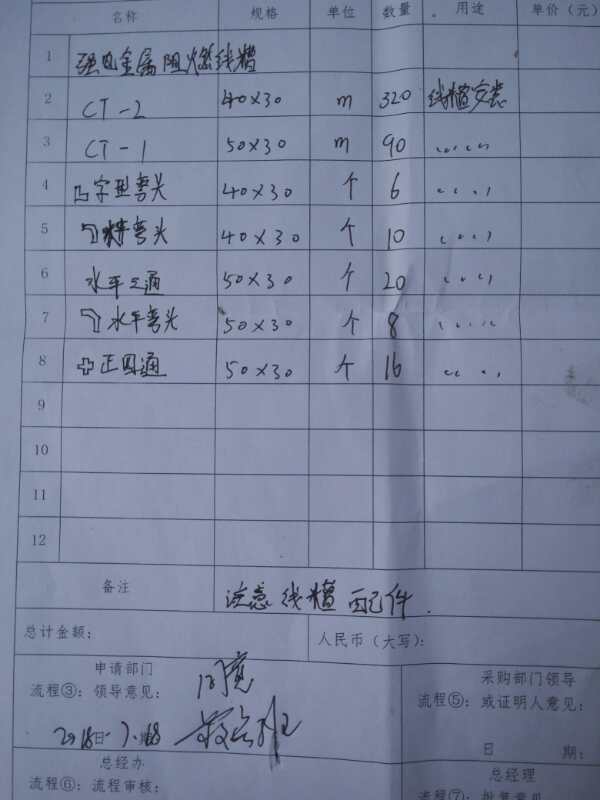 名称 规格 单位 数量 用途 单价（元）
1 强电金属阻燃线槽
2 CT-2 40×30 m 320 线槽安装
3 CT-1 50×30 m 90 〃
4 凸字型弯头 40×30 个 6 〃
5 弯头 40×30 个 10 〃
6 水平三通 50×30 个 20 〃
7 水平弯头 50×30 个 8 〃
8 正四通 50×30 个 16 〃
9
10
11
12
备注 注意线槽配件.
总计金额： 人民币（大写）：
申请部门 采购部门领导
流程③：领导意见： 同意 流程⑤：或证明人意见：
日 期：
总经办 总经理
流程⑥：流程审核： 流程⑦：批复意见